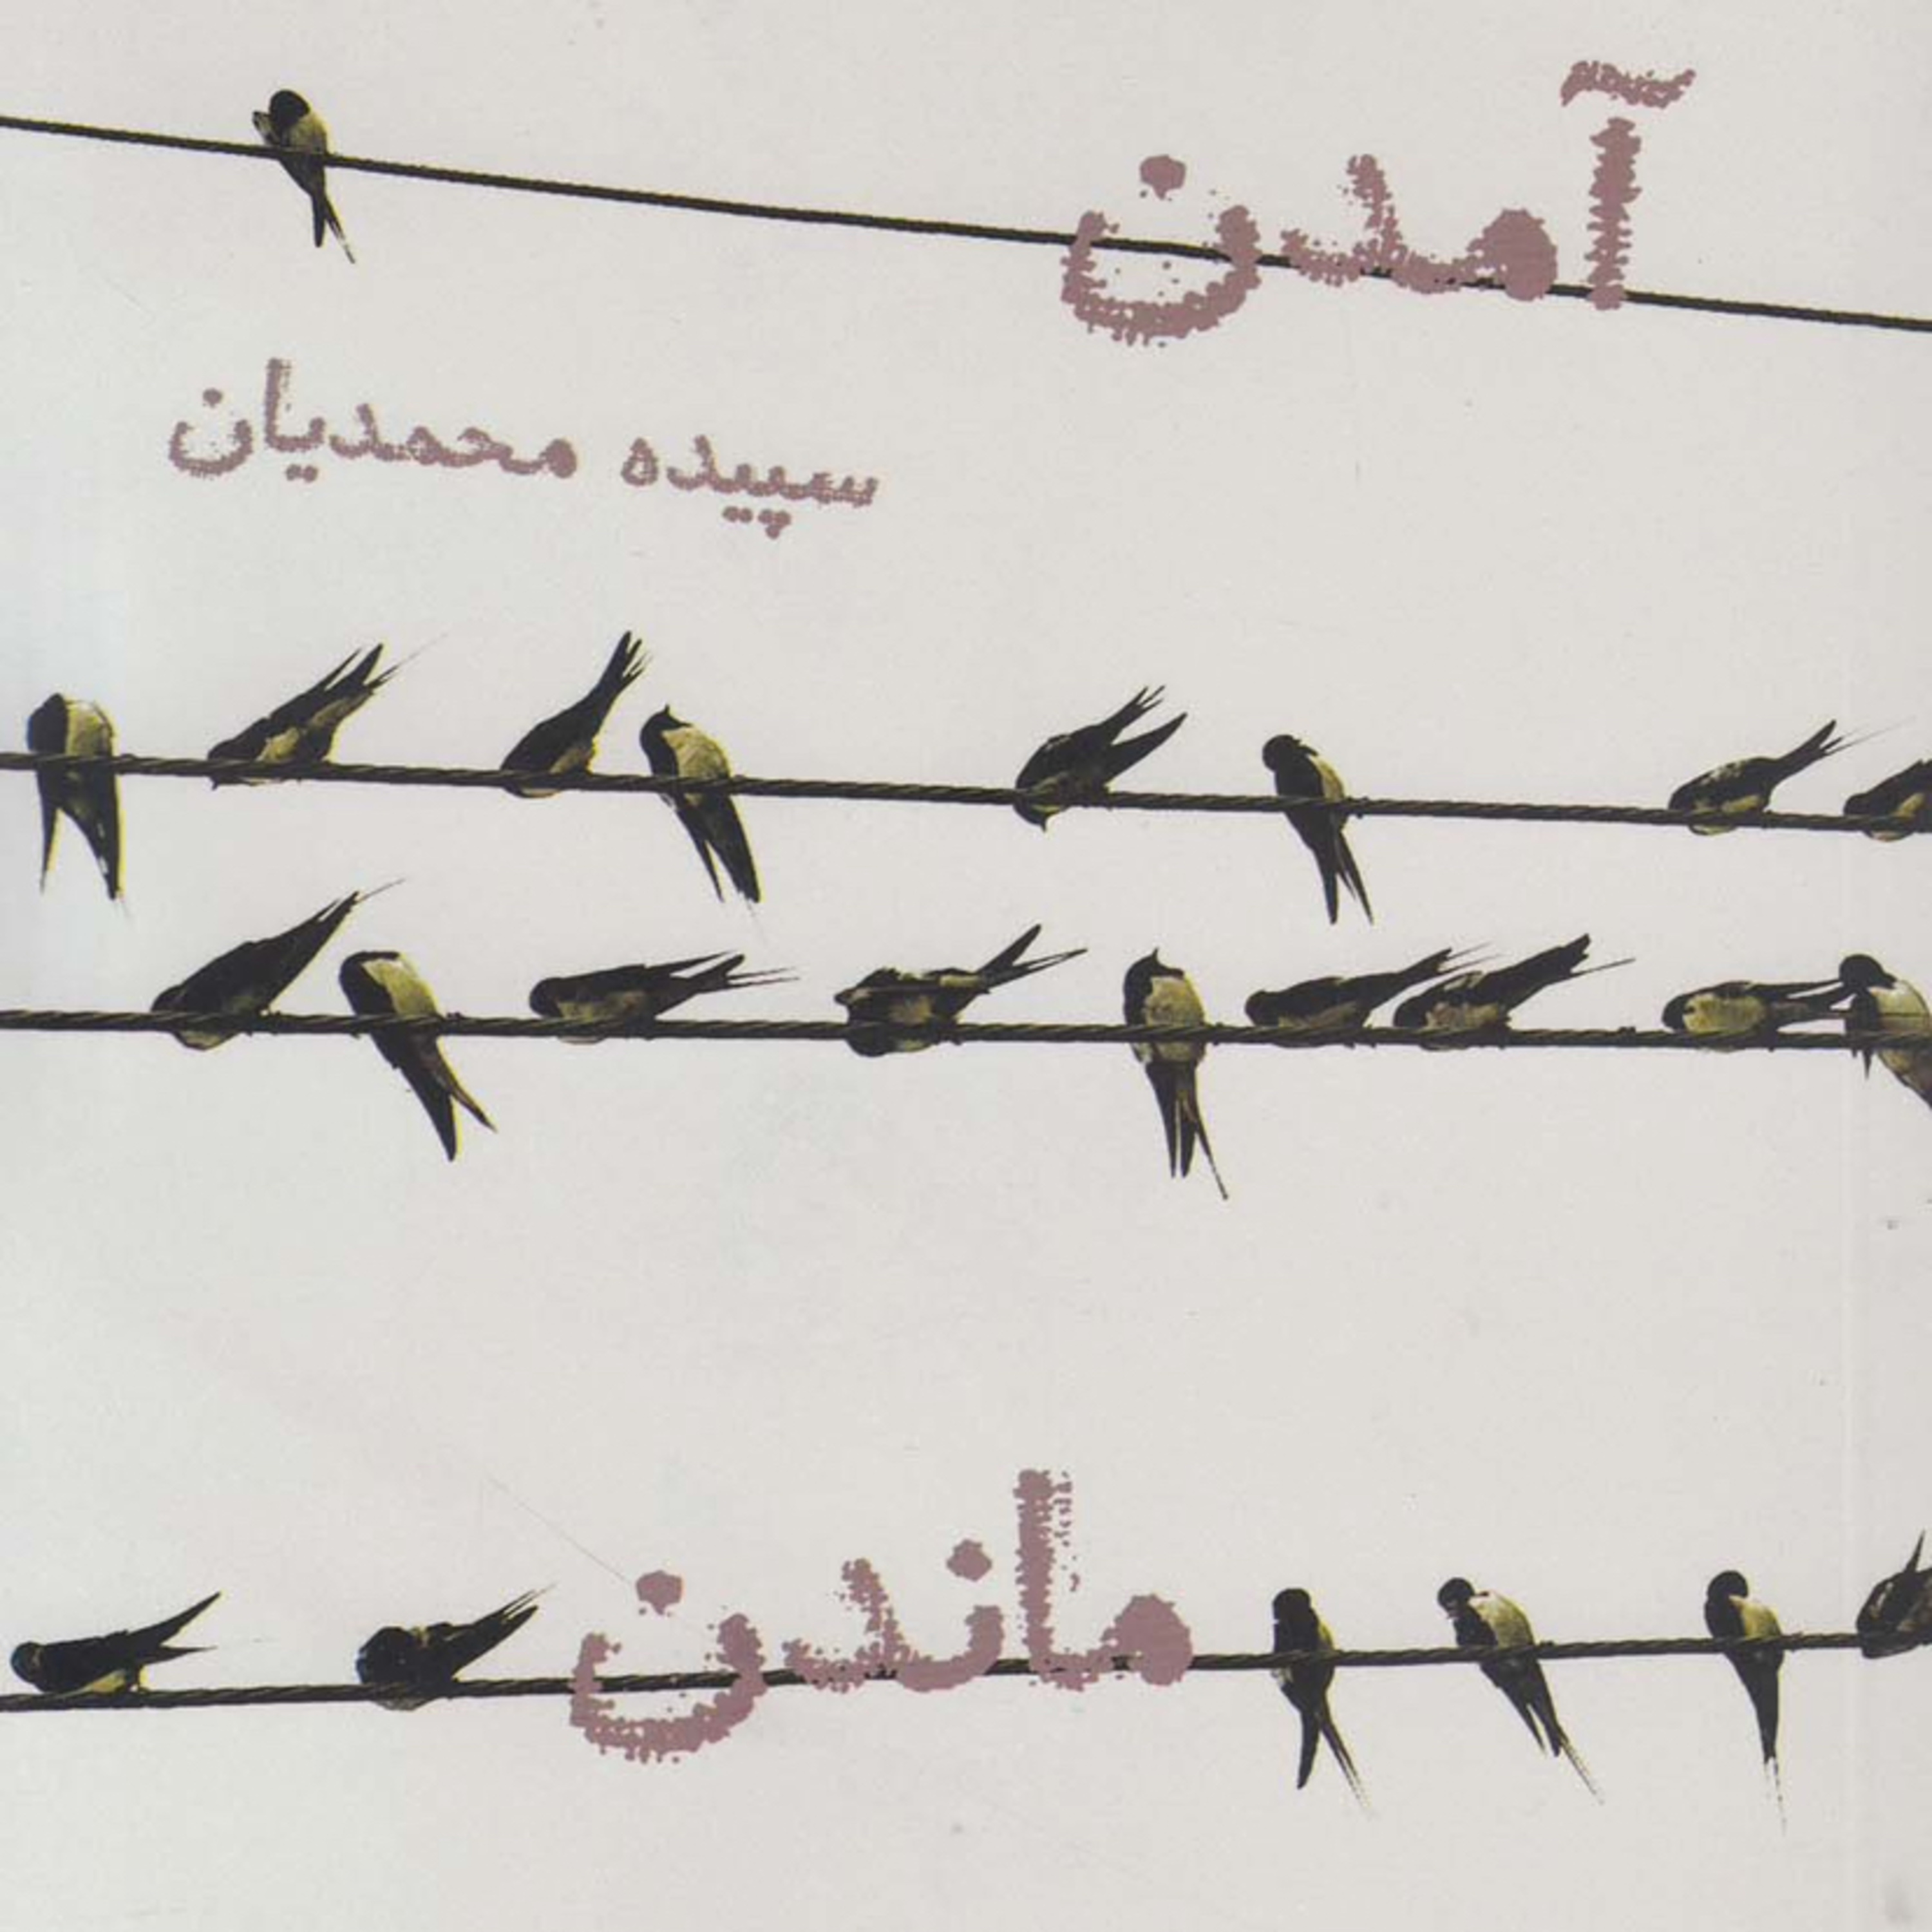 آمدن
سپیده محمدیان
ماندن